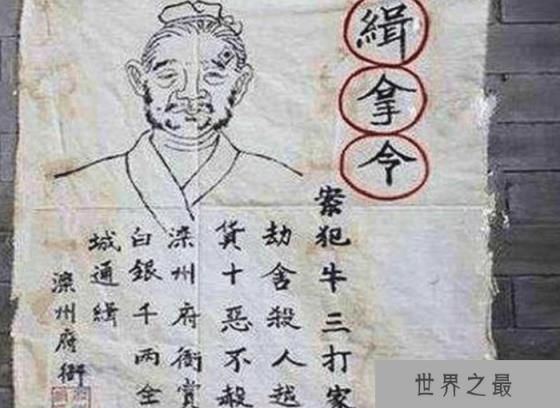 緝拿令
案犯牛三打家
劫舍殺人越
貨十惡不赦
滦州府衙賞
白銀千兩全
城通緝
滦州府衙
世界之最